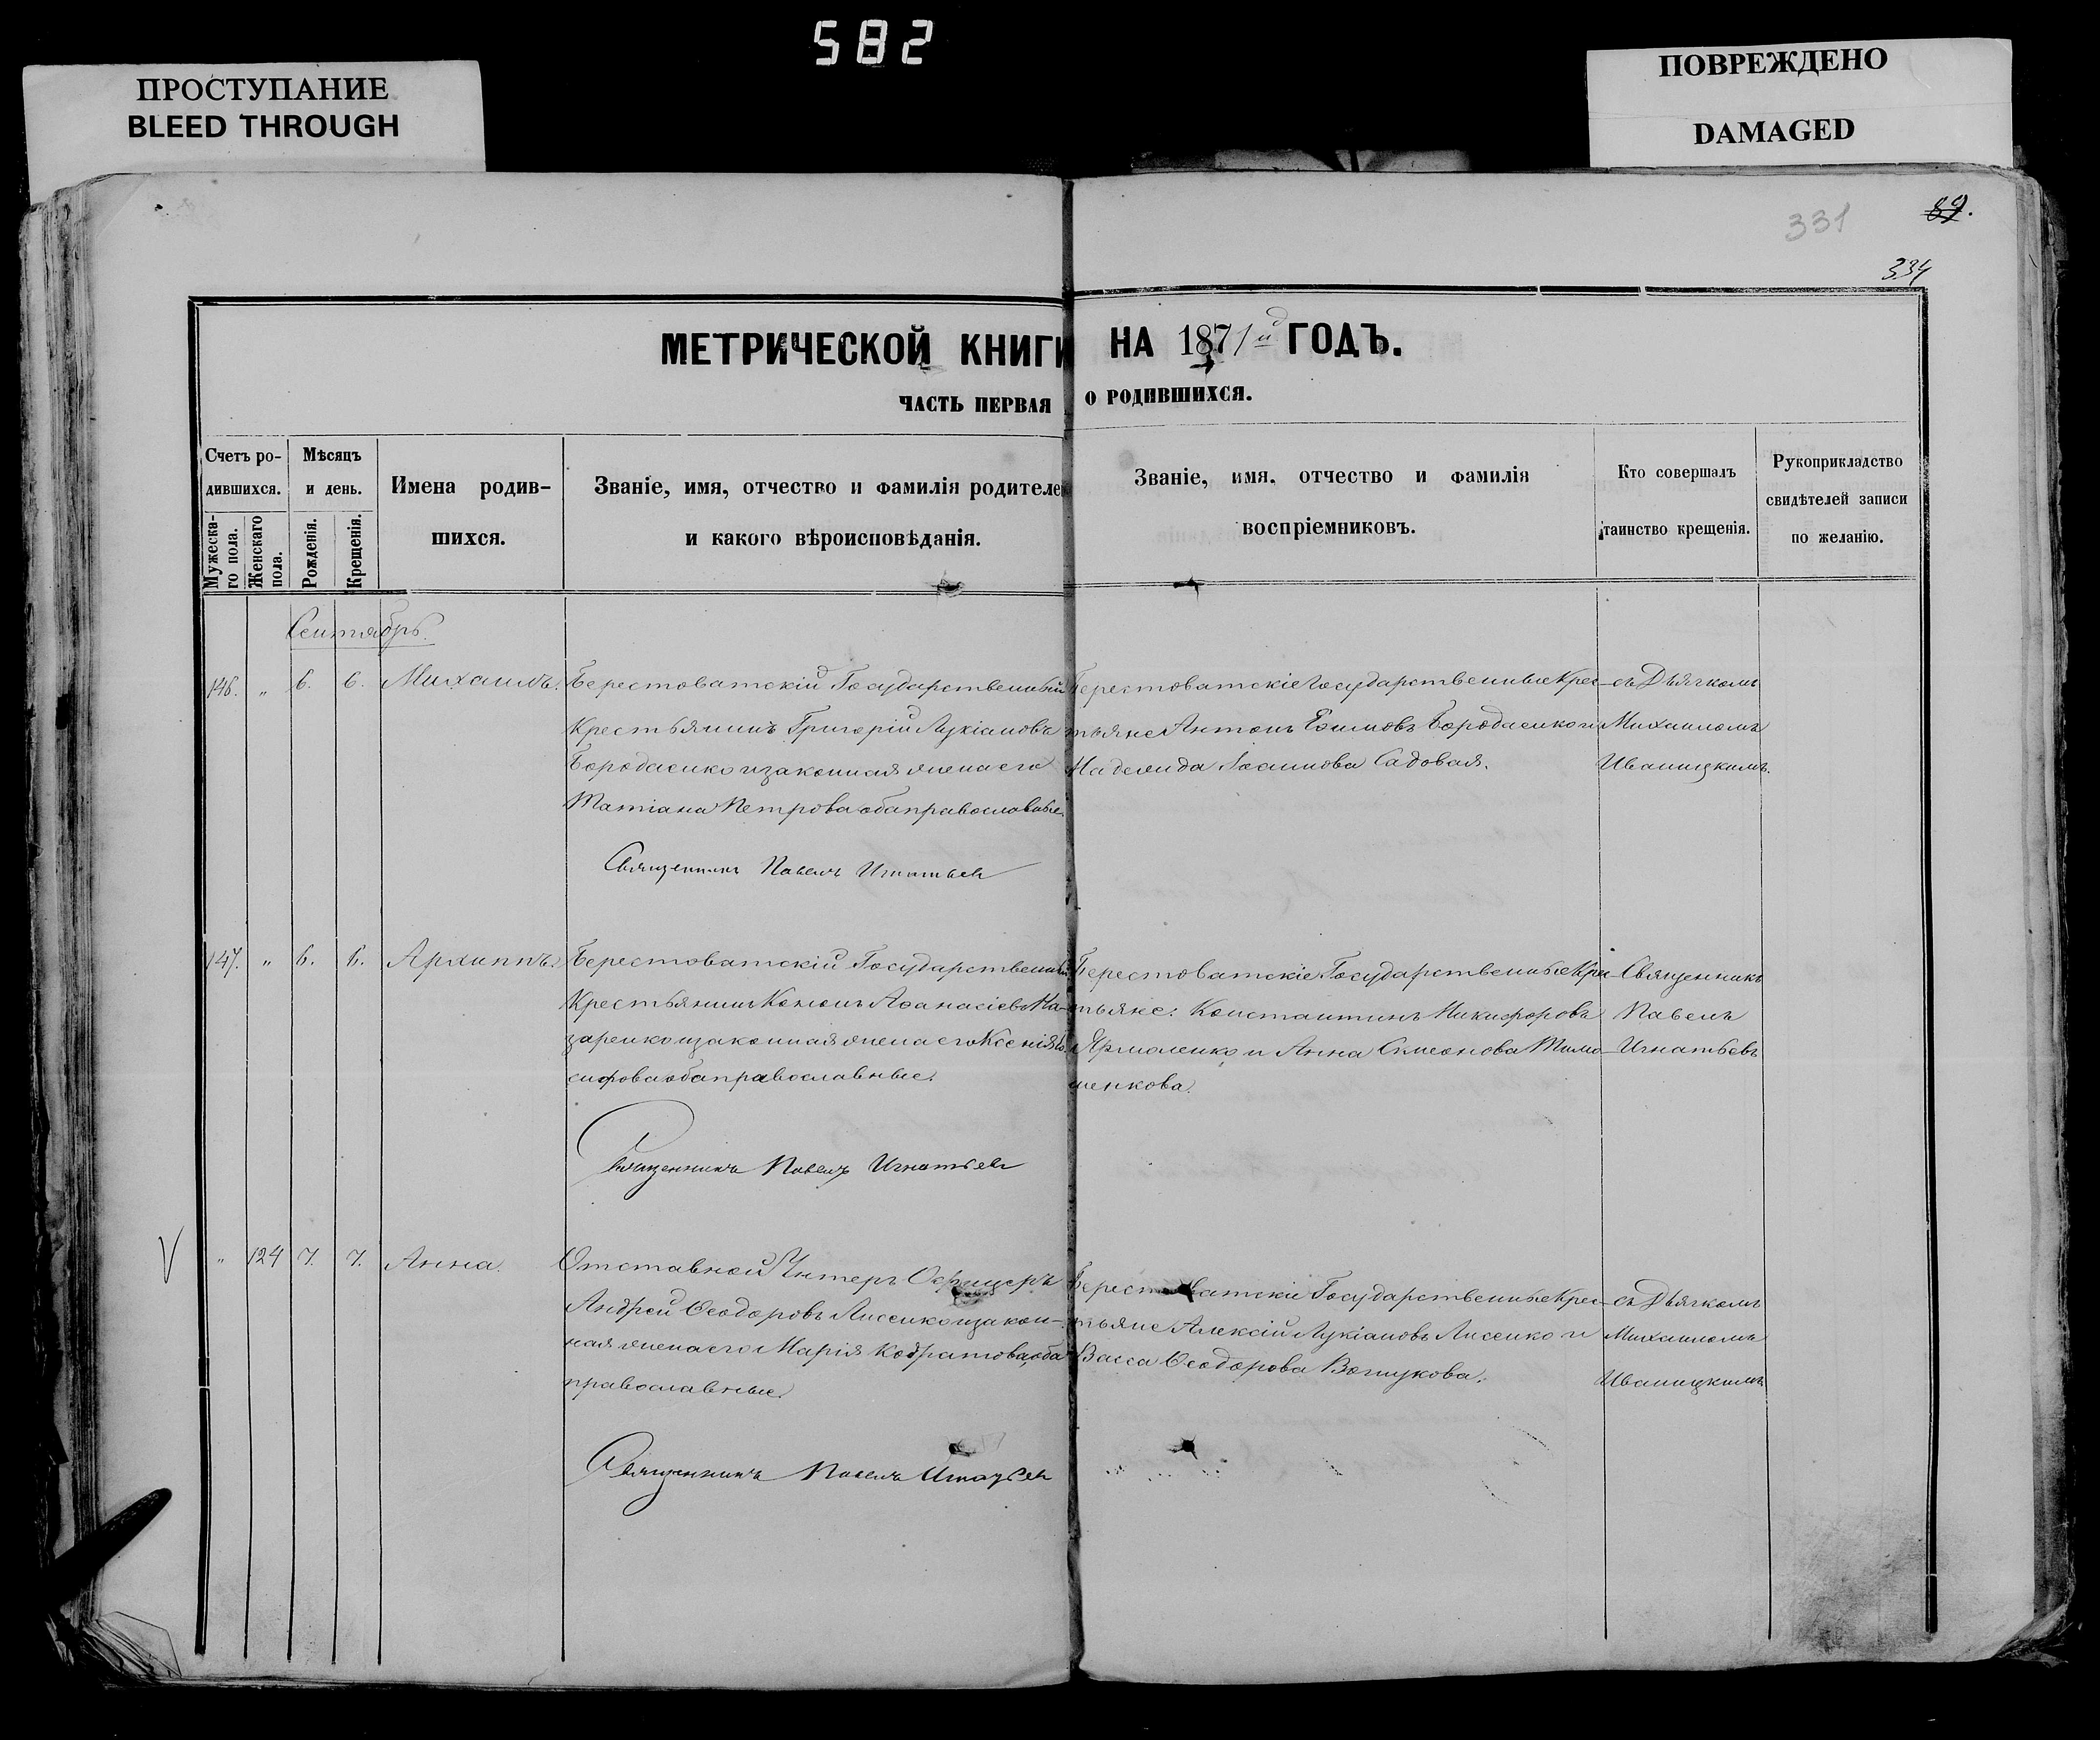 582
ПРОСТУПАНИЕ
BLEED THROUGH
ПОВРЕЖДЕНО
DAMAGED
331
89.
334
МЕТРИЧЕСКОЙ КНИГИ НА 1871й ГОДЪ.
ЧАСТЬ ПЕРВАЯ О РОДИВШИХСЯ.
Счетъ ро-
дившихся.
Мужеска-
го пола.
Женскаго
пола.
Мѣсяцъ
и день.
Рожденія.
Крещенія.
Имена родив-
шихся.
Званіе, имя, отчество и фамилія родителе
и какого вѣроисповѣданія.
Званіе, имя, отчество и фамилія
воспріемниковъ.
Кто совершалъ
таинство крещенія.
Рукоприкладство
свидѣтелей записи
по желанію.
Сентябрь.
146. „ 6. 6. Михаилъ.
Берестоватскій Государственный
Крестьянинъ Григорій Лукіановъ
Бородаенко и законная жена его
Татіана Петрова оба православные.
Священникъ Павелъ Игнатьев
Берестоватскіе Государственные Крес-
тьяне Антонъ Ефимовъ Бородаенко и
Надежда Садовая.
съ Дьячкомъ
Михаиломъ
Иваницкимъ.
147. „ 6. 6. Архиппъ.
Берестоватскій Государственный
Крестьянинъ Кононъ Аѳанасіевъ На-
заренко и законная жена его Ксенія
сифова оба православные.
Священникъ Павелъ Игнатьев
Берестоватскіе Государственные Крес-
тьяне: Константинъ Никифоровъ
Ярмоленко и Анна Симеонова Тимо-
шенкова.
Священникъ
Павелъ
Игнатьевъ
V „ 124 7. 7. Анна.
Отставной Унтеръ Офицеръ
Андрей Ѳеодоровъ Лисенко и закон-
ная жена его Марія Кодратова оба
православные.
Священникъ Павелъ Игнатьев
Берестоватскіе Государственные Крес-
тьяне Алексій Лукіановъ Лисенко и
Васса Ѳеодорова
съ Дьячкомъ
Михаиломъ
Иваницкимъ